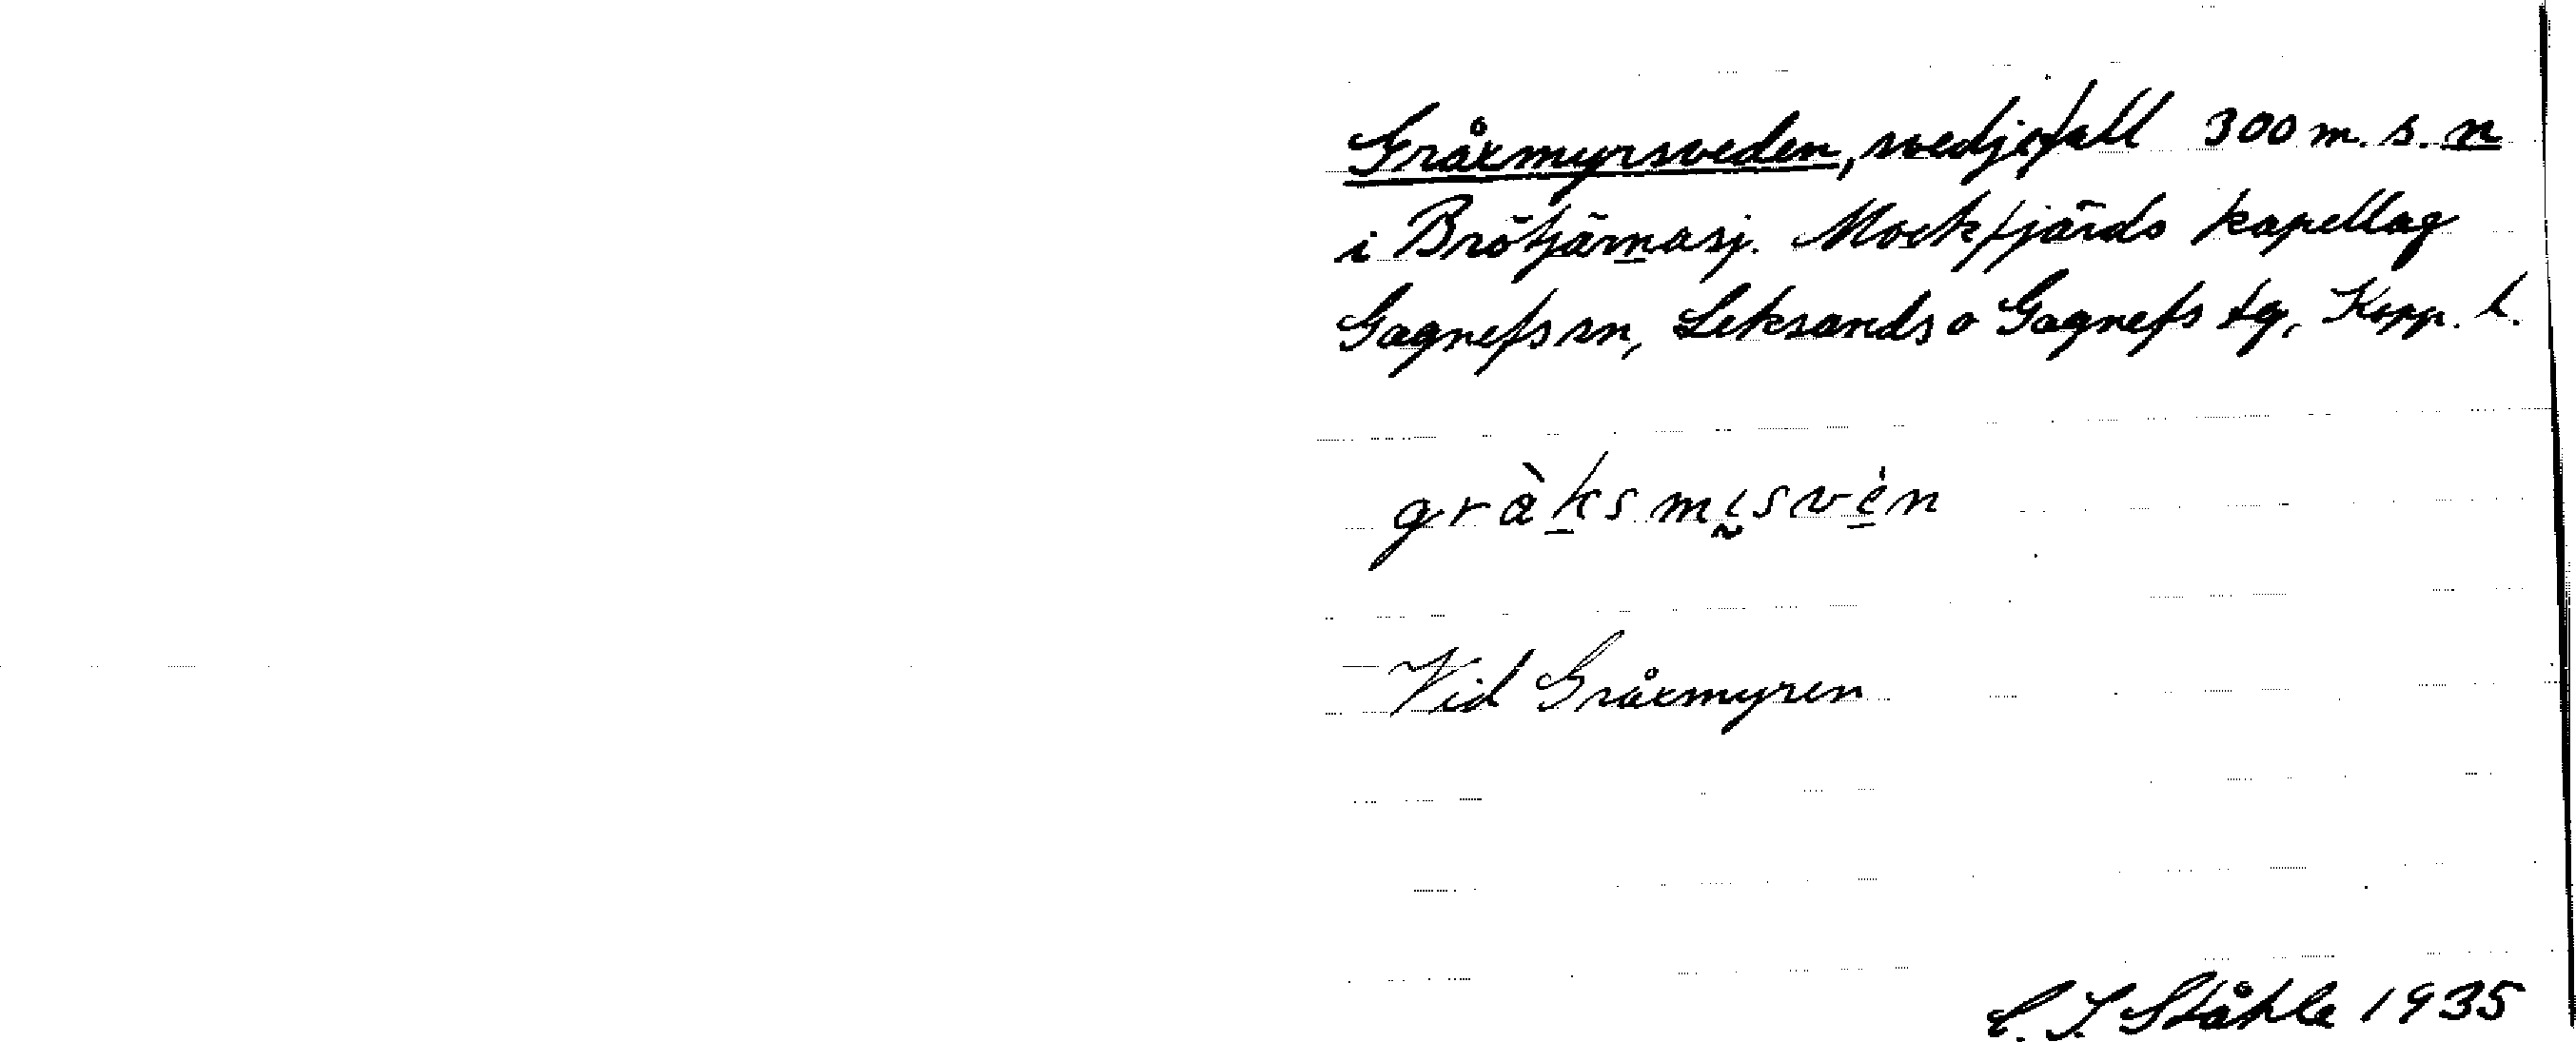 Gråxmyrsveden, svedjefall 300 m. s. n
i Brötjärnasj. Mockfjärds kapellag
Gagnefs sn, Leksands o Gagnefs tg, Kopp. l.
gràksmisvèn
Vid Gråxmyren
C. I. Ståhle 1935